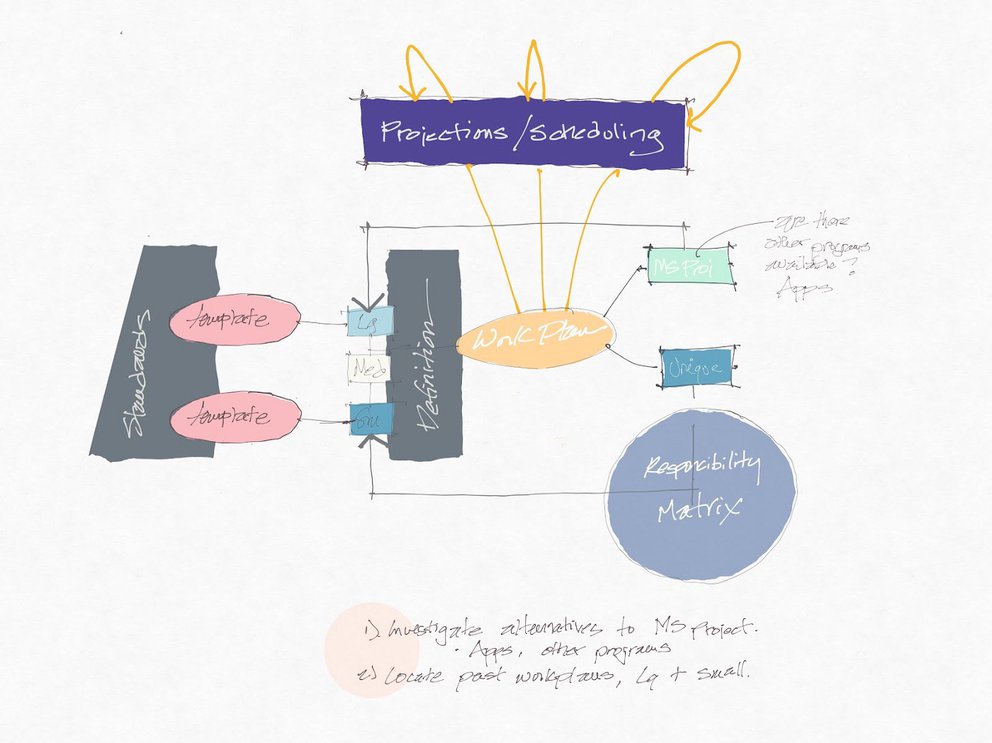 Projections/Scheduling
are there
other programs
available?
Apps
MS Proj
Standards
template
Lg
Work Plan
Med
Definition
Unique
template
Sm
Responcibility
Matrix
1). Investigate alternatives to MS Project.
· Apps, other programs
2) Locate past workplans, Lg + small.